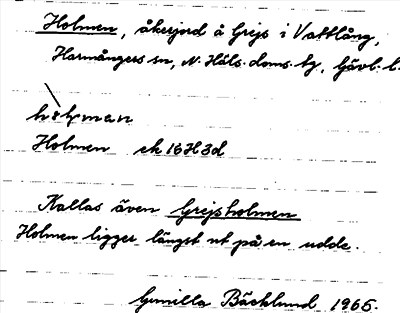 Holmen, åkerjord å Grejs i Vattlång,
Harmångers sn, N. Häls. doms. bg, Gävl. l.
Holmen ek 16H3d
Kallas även Grejsholmen
Holmen ligger längst ut på en udde.
Gunilla Bäcklund 1965.